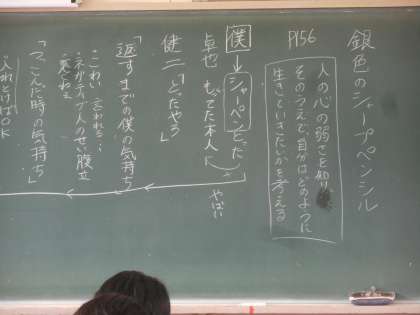 銀色のシャープペンシル
P156
人の心の弱さを知り
そのうえで、自分はどのように
生きていきたいかを考える
僕→シャーペンとった
卓也 もってた本人に
やばい
健二「とったやろ」
「返すまでの僕の気持ち
こわい 言われる
ネガティブ 人のせい 腹立
「つっこんだ時の気持ち」
入れとけばOK